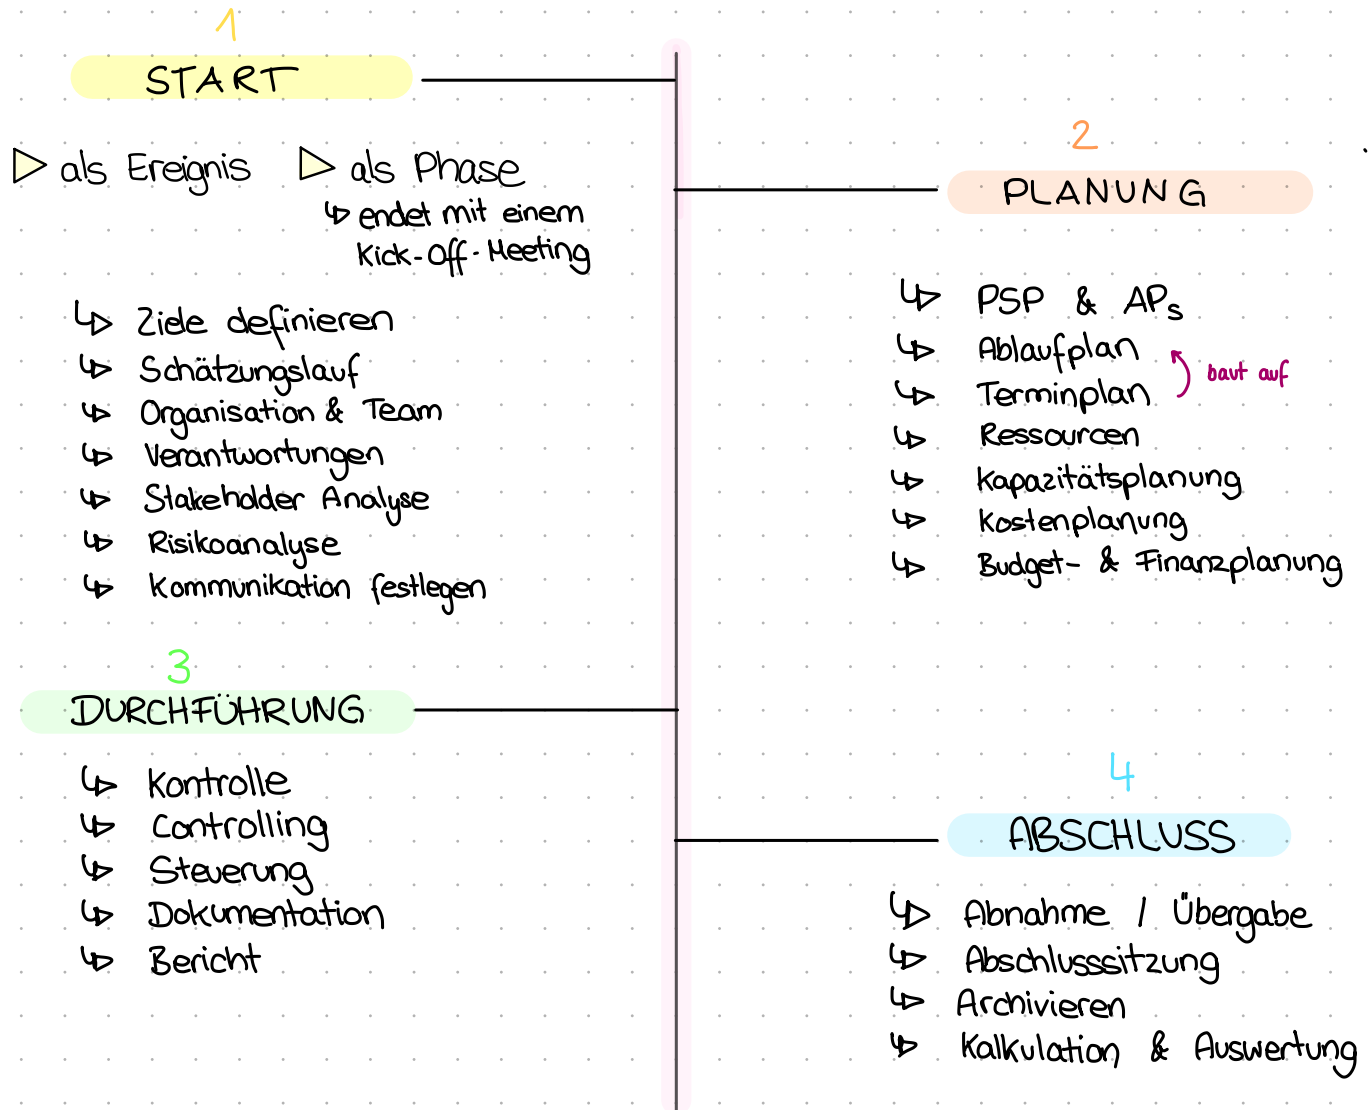 1
START
als Ereignis
als Phase
endet mit einem
Kick-Off-Meeting
Ziele definieren
Schätzungslauf
Organisation & Team
Verantwortungen
Stakeholder Analyse
Risikoanalyse
Kommunikation festlegen
2
PLANUNG
PSP & APs
Ablaufplan
baut auf
Terminplan
Ressourcen
Kapazitätsplanung
Kostenplanung
Budget- & Finanzplanung
3
DURCHFÜHRUNG
Kontrolle
Controlling
Steuerung
Dokumentation
Bericht
4
ABSCHLUSS
Abnahme / Übergabe
Abschlusssitzung
Archivieren
Kalkulation & Auswertung